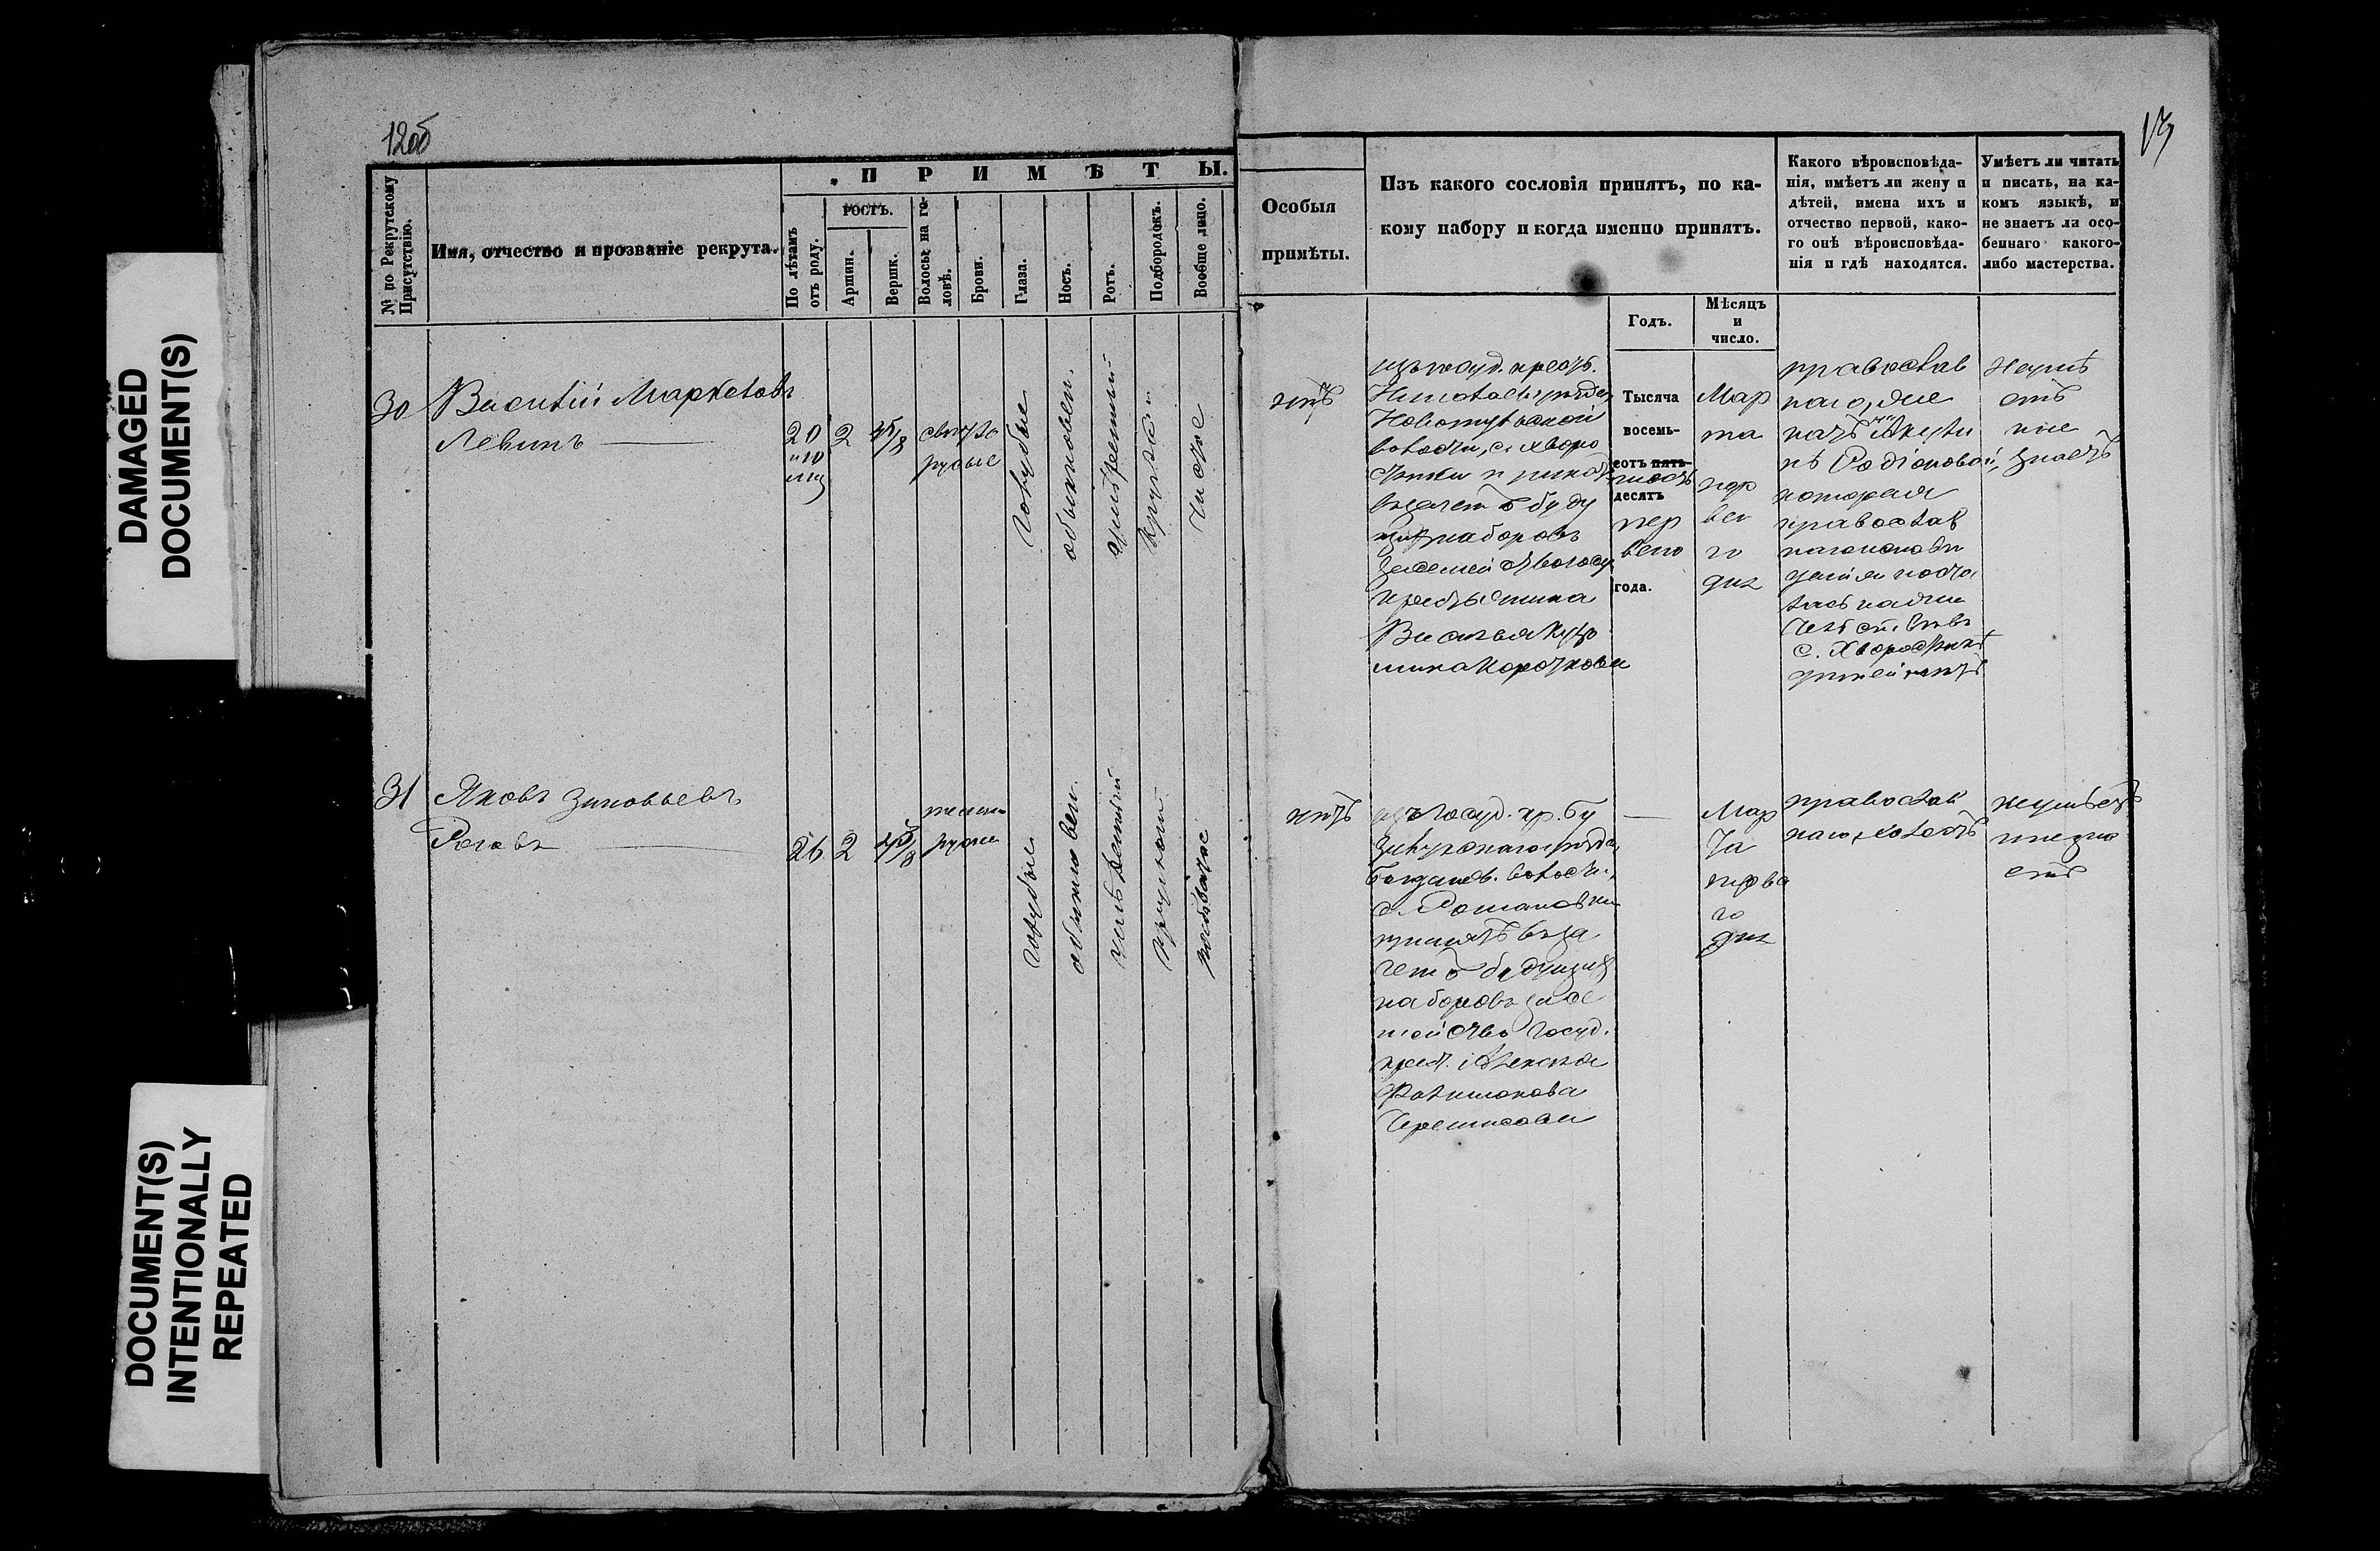 DAMAGED
DOCUMENT(S)
DOCUMENT(S)
INTENTIONALLY
REPEATED
12об
13
№ по Рекрутскому
Присутствію.
Имя, отчество и прозваніе рекрута.
ПРИМѢТЫ.
По лѣтамъ
отъ роду.
РОСТЪ.
Аршин.
Вершк.
Волосы на го-
ловѣ.
Брови.
Глаза.
Носъ.
Ротъ.
Подбородокъ.
Вообще лицо.
Особыя
примѣты.
Изъ какого сословія принятъ, по ка-
кому набору и когда именно принятъ.
Годъ.
Мѣсяцъ
и
число.
Какого вѣроисповѣда-
нія, имѣетъ ли жену и
дѣтей, имена ихъ и
отчество первой, како-
го онѣ вѣроисповѣда-
нія и гдѣ находятся.
Умѣетъ ли читать
и писать, на ка-
комъ языкѣ, и
не знаетъ ли осо-
беннаго какого-
либо мастерства.
30
Василій Маркеловъ
Левинъ
20
2
4 5/8
свѣтло
русые
голубые
обыкновен.
умѣренный
круглый
чистое
нѣтъ
изъ госуд. крест.
Николаев. уѣзда
волости, с. Хворо
въ зачетъ буду
наборовъ
за семейство госуд
крестьянина
Василья Кузь
мина Короткова
Тысяча
восемь-
сотъ пять-
шесть
десятъ
пер
ваго
года.
Мар
та
пер
ваго
дня
православ
наго, же
натъ на Акули
нѣ Родіоновой,
которая
православ
наго исповѣ
данія оста
лась на жи
с. Хворостянкѣ
дѣтей нѣтъ
Неумѣ
етъ
и не
знаетъ
31
Яковъ Зиновьевъ
Роговъ
26
2
4 5/8
темно
русые
голубые
обыкновен.
умѣренный
круглый
нѣтъ
изъ госуд. кр. Бу
зулукскаго уѣзда,
Богданов. волости,
д. Романовки
принятъ въ за
четъ будущихъ
наборовъ за се
мейство госуд.
крест. Алексѣя
Филимонова
Черемисова
Мар
та
перва
го
дня
православ
наго, холостъ
неумѣетъ
и незна
етъ